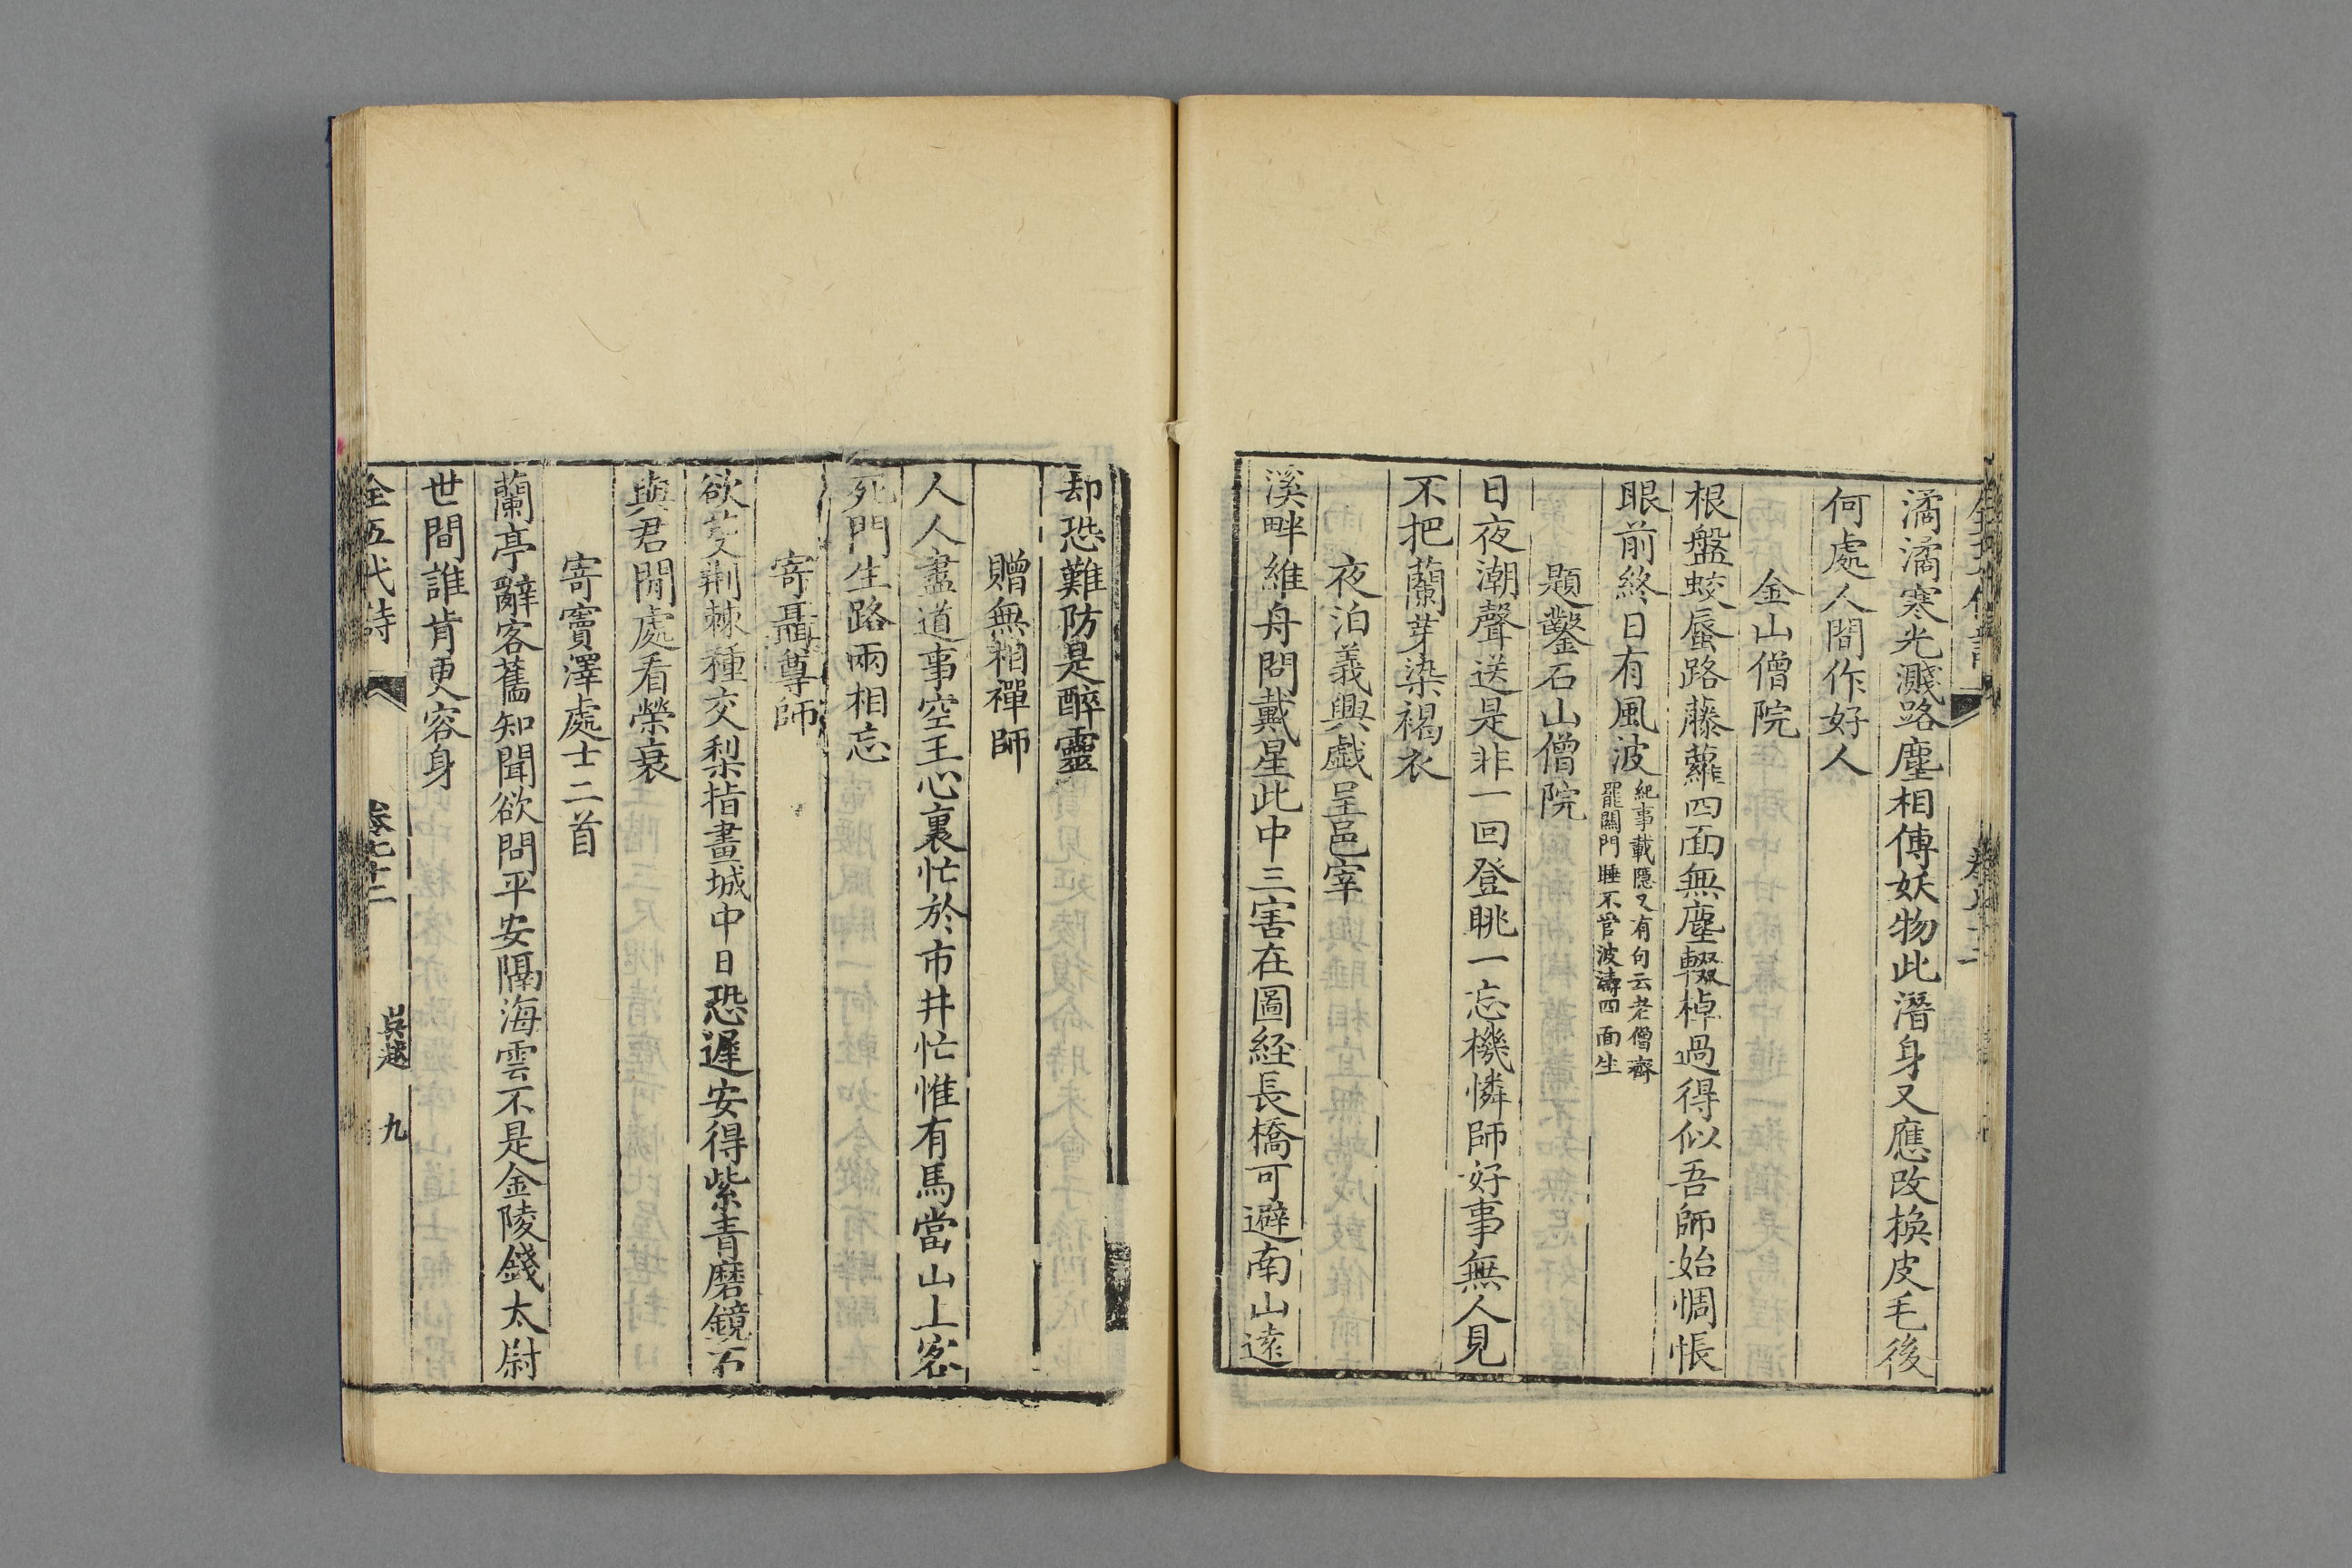 潏潏寒光濺路塵相傳妖物此潛身又應改換皮毛後
何處人間作好人
金山僧院
根盤蛟蜃路藤蘿四面無塵輟棹過得似吾師始惆悵
眼前終日有風波
紀事載隱又有句云老僧齋
罷關門睡不管波濤四面生
題鑿石山僧院
日夜潮聲送是非一回登眺一忘機憐師好事無人見
不把蘭芽染褐衣
夜泊義興戲呈邑宰
溪畔維舟問戴星此中三害在圖経長橋可避南山遠
却恐難防是醉靈
贈無相禪師
人人盡道事空王心裏忙於市井忙惟有馬當山上客
死門生路兩相忘
寄聶尊師
欲芟荆棘種交梨指畫城中日恐遲安得紫青磨鏡石
與君閒處看榮衰
寄竇澤處士二首
蘭亭醉客舊知聞欲問平安隔海雲不是金陵錢太尉
世間誰肯更容身
全五代詩 卷七十二 吳越 九